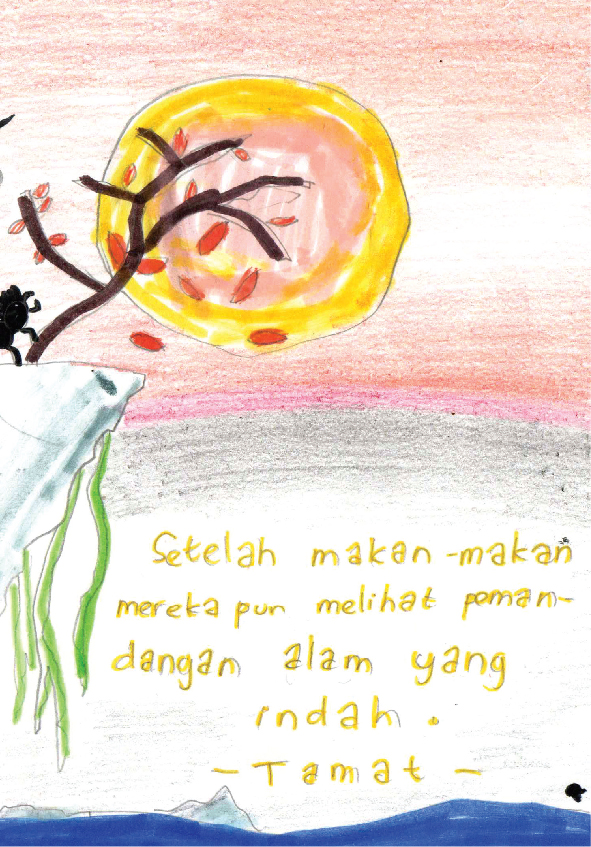 Setelah makan-makan
mereka pun melihat peman-
dangan alam yang
indah.
- Tamat -